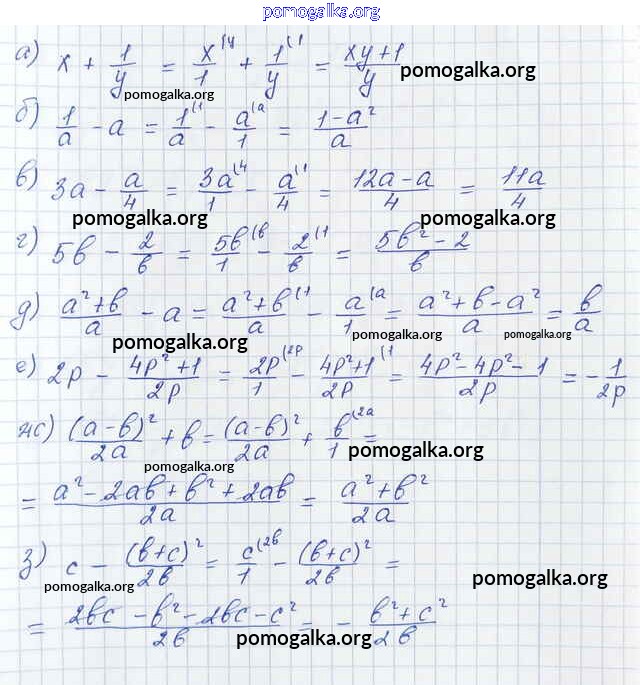 pomogalka.org
а) x + 1/y = x/1 (y + 1/y (1 = xy+1/y
pomogalka.org pomogalka.org
б) 1/a - a = 1/a (1 - a/1 (a = 1-a²/a
в) 3a - a/4 = 3a/1 (4 - a/4 (1 = 12a-a/4 = 11a/4
pomogalka.org pomogalka.org
г) 5b - 2/b = 5b/1 (b - 2/b (1 = 5b²-2/b
д) a²+b/a - a = a²+b/a (1 - a/1 (a = a²+b-a²/a = b/a
pomogalka.org pomogalka.org pomogalka.org
е) 2p - 4p²+1/2p = 2p/1 (2p - 4p²+1/2p (1 = 4p²-4p²-1/2p = -1/2p
ж) (a-b)²/2a + b = (a-b)²/2a + b/1 (2a =
pomogalka.org pomogalka.org
= a²-2ab+b²+2ab/2a = a²+b²/2a
з) c - (b+c)²/2b = c/1 (2b - (b+c)²/2b =
pomogalka.org pomogalka.org
= 2bc-b²-2bc-c²/2b = - b²+c²/2b
pomogalka.org